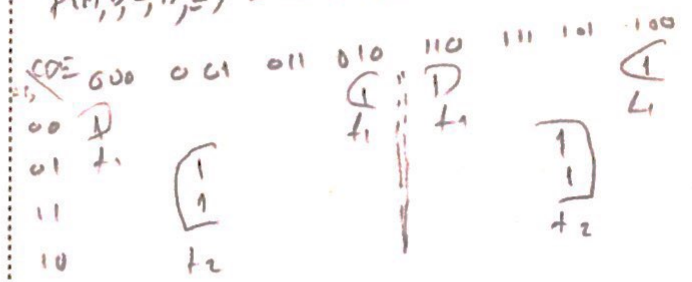 CDE 000 001 011 010 110 111 101 100
00 1 1 1 1
t1 t1 t1
01 t1 1 1
11 1 1
t2
10 t2